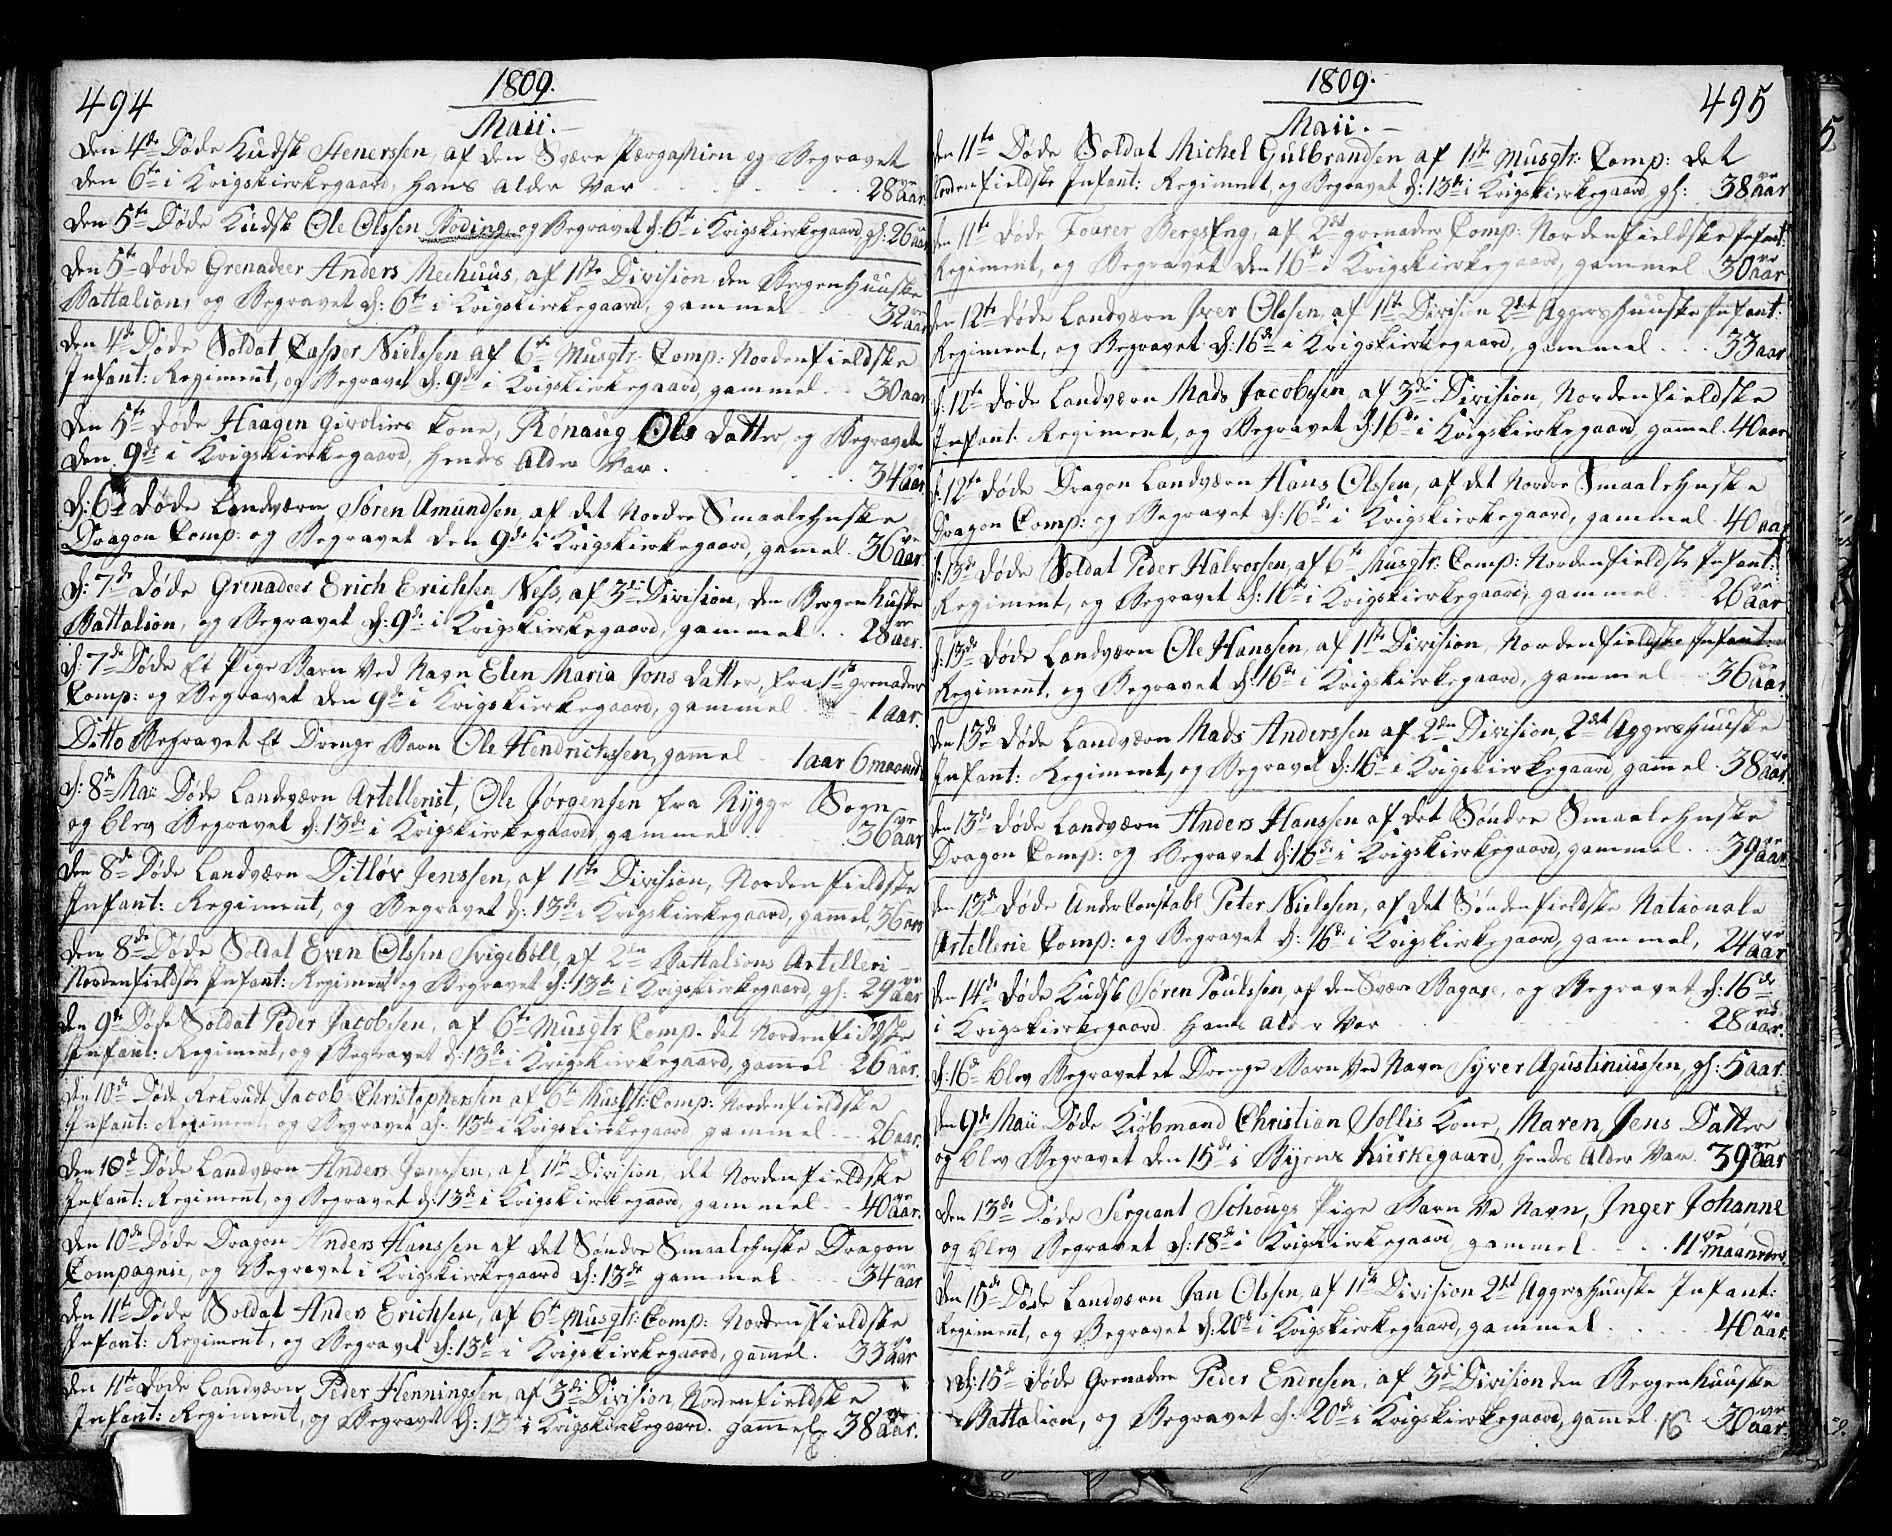 494
1809.
Maii.
Den 4de Døde Kudsk Stenerssen, af den Svære og Begravet
den 6te i Krigskierkegaard, Hans Alder Var 28ve aar.
Den 5te Døde Kudsk Ole Olssen Boding og Begravet d: 6te i Krigskierkegaard, gl: 26 aar
Den 5te Døde Grenadeer Anders Meehuus, af 1ste Division den Bergenhuuske
Battalion, og Begravet d: 6te i Krigskierkegaard, gammel 32ve aar
Den 4de Døde Soldat Casper Nielssen af 6te Musqtr: Comp: Nordenfieldske
Infant: Regiment, og Begravet d: 9de i Krigskierkegaard, gammel 30 aar
Den 5te Døde Haagen Kone, Rønaug Ols Datter, og Begravet
den 9de i Krigskierkegaard, Hendes Alder Var 34ve aar.
d: 6te Døde Landværn Søren Amundsen, af det Nordre Smaalehnske
Dragon Comp: og Begravet den 9de i Krigskierkegaard, gamel 36ve aar.
d: 7de Døde Grenadeer Erich Erichsen Ness, af 3die Division, den Bergenhuske
Battalion, og Begravet d: 9de i Krigskierkegaard, gammel 28ve aar.
d: 7de Døde Et Pige Barn Ved Navn Elen Maria Jons Datter, fra 1ste grenader
Comp: og Begravet den 9de i Krigskierkegaard, gammel 1 aar.
Ditto Begravet Et Drenge Barn Ole Hendrichssen, gamel 1 aar 6 maaneder
d: 8de Maii Døde Landværn Artellerist, Ole Jørgensen fra Rygge Sogn
og blev Begravet d: 13de i Krigskierkegaard, gammel 36ve aar
Den 8de Døde Landværn Ditløv Jenssen, af 1ste Division, Nordenfieldske
Infant: Regiment, og Begravet d: 13de i Krigskierkegaard, gammel, 36 aar
Den 8de Døde Soldat Even Olssen Svigebøll, af 2den Battalions Artelleri
Nordenfieldske Infant: Regiment og Begravet d: 13de i Krigskierkegaard, gl: 29ve aar
Den 9de Døde Soldat Peder Jacobssen, af 6te Musqtr Comp: det Nordenfieldske
Infant: Regiment, og Begravet d: 13de i Krigskierkegaard, gammel 26 aar.
Den 10de Døde Rekrudt Jacob Christophersen af 6te Musqtr: Comp: Nordenfieldske
Infant: Regiment, og Begravet d: 13de i Krigskierkegaard, gammel 26 aar.
Den 10de Døde Landværn Anders Jenssen, af 1ste Division det Nordenfieldske
Infant: Regiment, og Begravet d: 13de i Krigskierkegaard, gammel 40ve aar.
Den 10de Døde Dragon Anders Hanssen af det Søndre Smaalehnske Dragon
Compagnie, og Begravet i Krigskierkegaard d: 13de gammel 34ve aar
Den 11te Døde Soldat Anders Erichsen, af 6te Musqtr: Comp: Nordenfieldske
Infant: Regiment, og Begravet d: 13de i Krigskierkegaard, gammel. 33ve aar
Den 11te Døde Landværn Peder Henningssen, af 3die Division Nordenfieldske
Infant: Regiment, og Begravet d: 13de i Krigskierkegaard. gammel 38ve aar.
1809.
495
Maii.
den 11te Døde Soldat Michel Gulbrandsen af 1ste Musqtr: Comp: det
Nordenfieldske Infant: Regiment, og Begravet d: 13de i Krigskierkegaard, gl: 38ve aar
den 11te Døde Fourer Bergseng, af 2det grenader Comp: Nordenfieldske Infant:
Regiment, og Begravet den 16te i Krigskierkegaard, gammel 30ve aar
den 12te Døde Landværn Iver Olssen, af 1ste Division 2det Aggershuuske Infant:
Regiment, og Begravet d: 16de i Krigskierkegaard, gammel 33 aar
d: 12te Døde Landværn Mads Jacobsen, af 3die Division, Nordenfieldske
Infant: Regiment, og Begravet d: 16de i Krigskierkegaard, gamel. 40 aar
d: 12te Døde Dragon Landværn Hans Olssen, af det Nordre Smaalehnske
Dragon Comp: og Begravet d: 16de i Krigskierkegaard, gammel 40 aar
d: 13de Døde Soldat Peder Halvorsen, af 6te Musqtr: Comp: Nordenfieldske Infant:
Regiment, og Begravet d: 16de i Krigskierkegaard, gammel 26ve aar
d: 13de Døde Landværn Ole Hanssen, af 1ste Division, Nordenfieldske Infant:
Regiment, og Begravet d: 16de i Krigskierkegaard, gammel 36ve aar.
den 13de Døde Landværn Mads Anderssen af 2den Division, 2det Aggershuuske
Infant: Regiment, og Begravet d: 16de i Krigskierkegaard, gammel 38ve aar.
den 13de Døde Landværn Anders Hanssen af det Søndre Smaalehnske
Dragon Comp: og Begravet d: 16de i Krigskierkegaard, gammel 39ve aar.
den 13de Døde UnderConstabl Peter Nielssen, af det Søndenfieldske Nationale
Artellerie Comp: og Begravet d: 16de i Krigskierkegaard, gammel, 24ve aar
den 14de Døde Kudsk Søren Poulssen, af den Svære Bagase, og Begravet d: 16de
i Krigskierkegaard. Hans Alder Var 28ve aar.
d: 16de blev Begravet et Drenge Barn Ved Navn Syver Agustiniussen, gl: 5 aar.
den 9de Maii Døde Kiøbmand Christian Sollis Kone, Maren Jens Datter
og blev Begravet den 15de i Byens Kierkegaard, Hendes Alder Var 39ve aar
den 13de Døde Sergeant Schougs Pige Barn Ve Navn, Inger Johanne
og blev Begravet d: 18de i Krigskierkegaard gammel 11ve maaneder
den 15de Døde Landværn Jan Olssen, af 1ste Division 2det Aggershuuske Infant:
Regiment, og Begravet d: 20de i Krigskierkegaard, gammel 40ve aar.
d: 15de Døde Grenadeer Peder Endresen, af 3die Division den Bergenhuuske
Battalion, og Begravet d: 20de i Krigskierkegaard, gammel. 30ve aar.
16